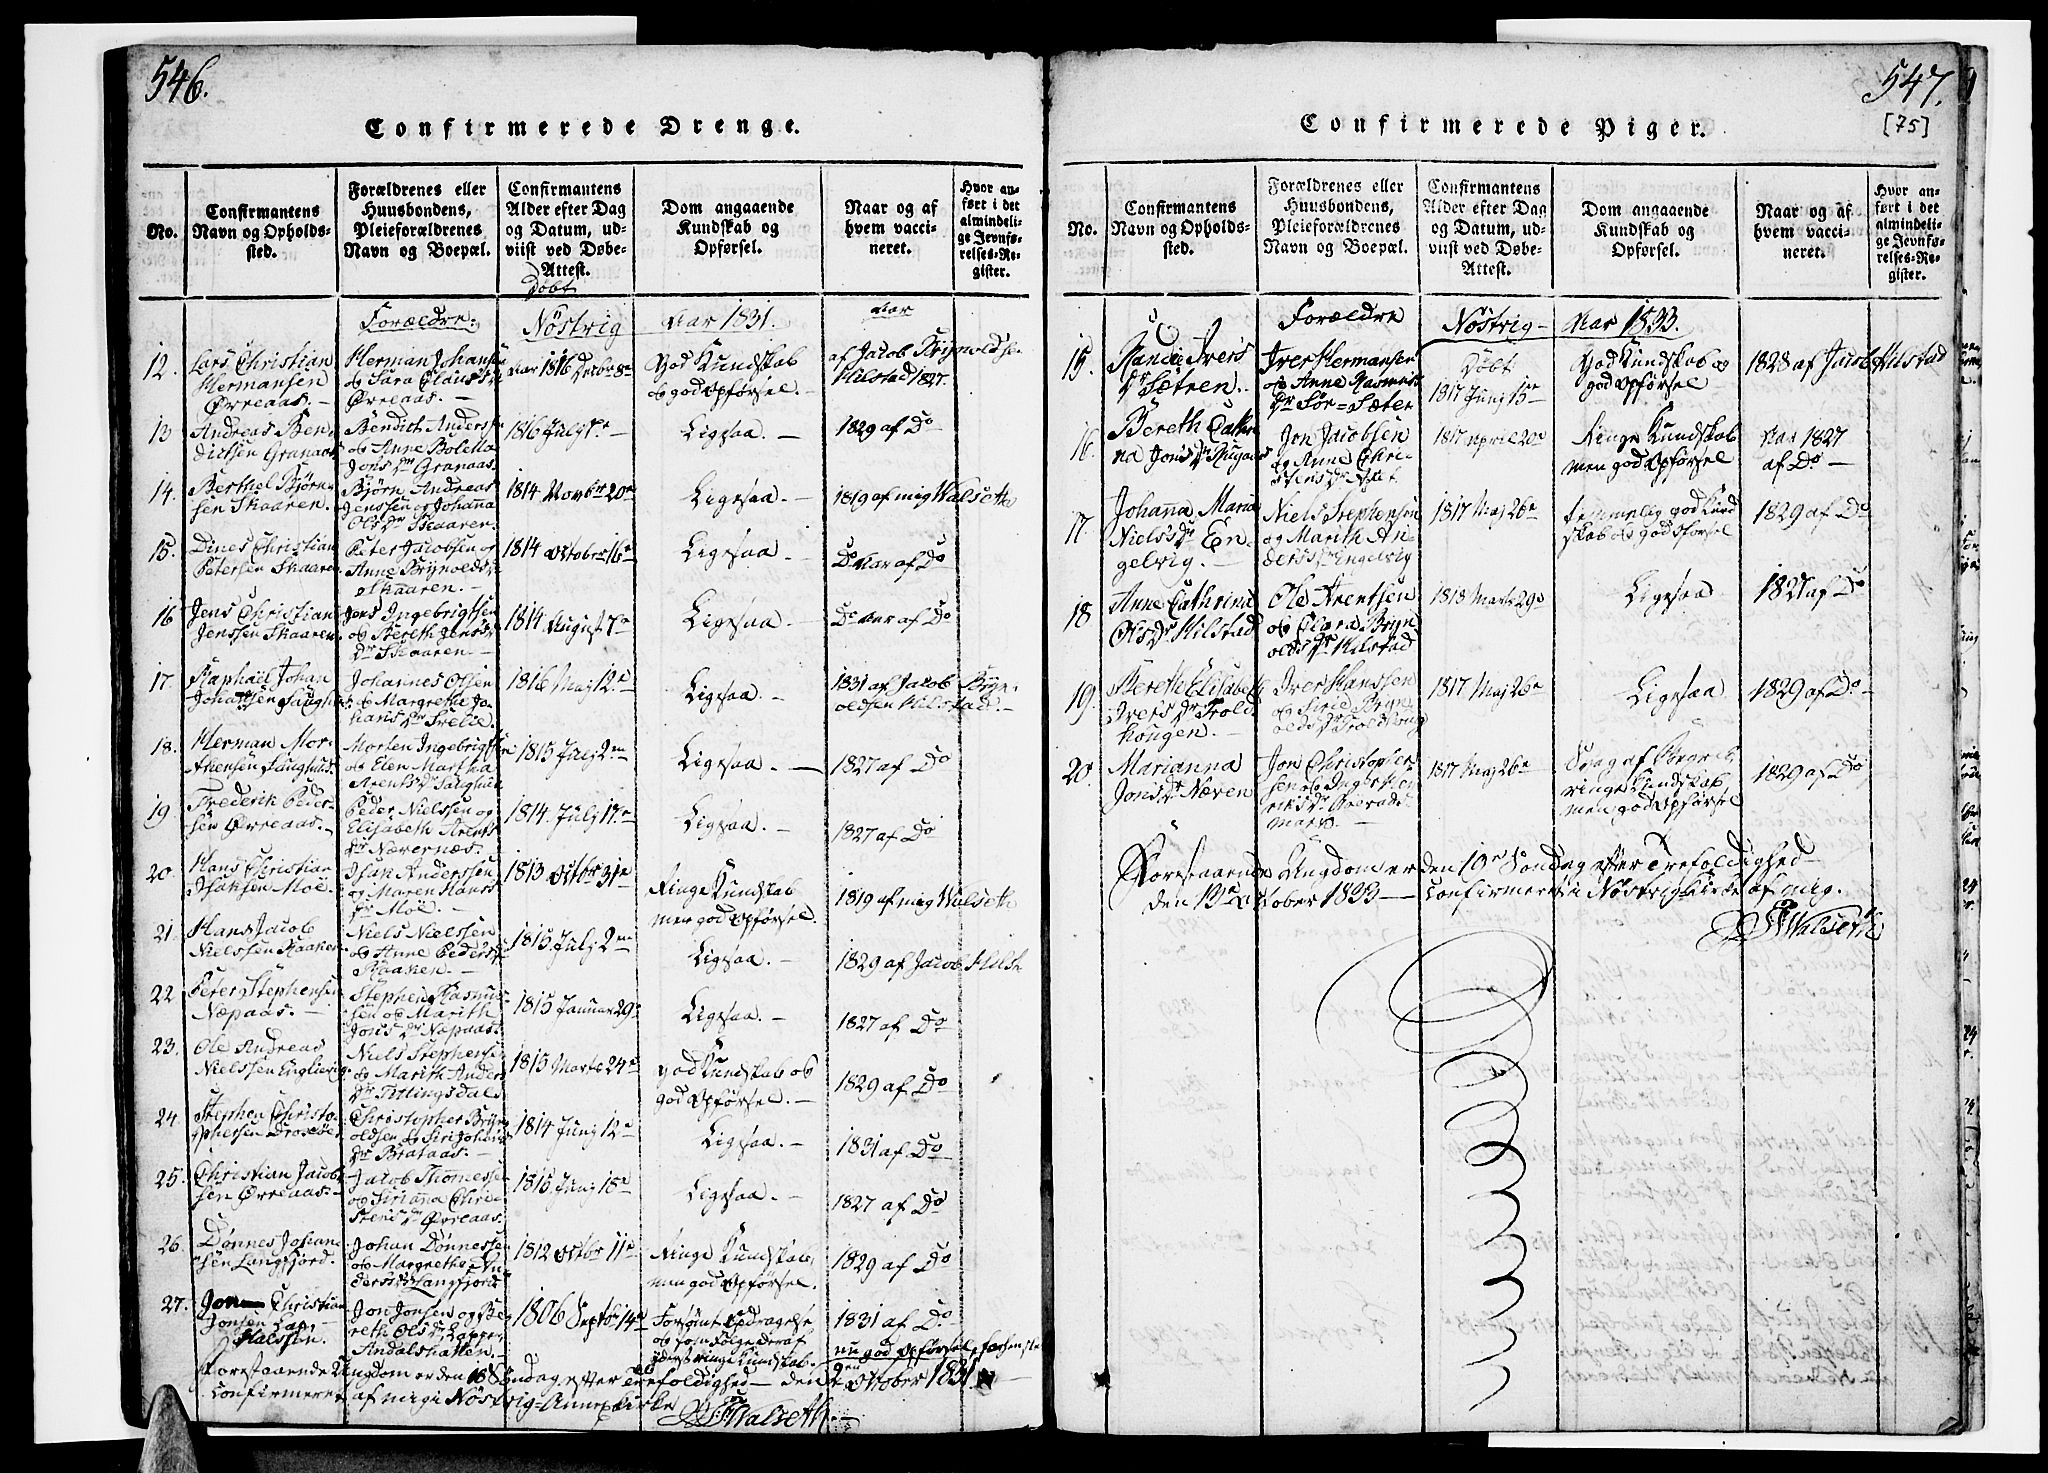 546.
Confirmerede Drenge.
No.
Confirmantens
Navn og Opholds-
sted.
Forældrenes eller
Huusbondens,
Pleieforældrenes
Navn og Boepæl.
Confirmantens
Alder efter Dag
og Datum, ud-
viist ved Døbe-
Attest.
Døbt
Dom angaaende
Kundskab og
Opførsel.
Naar og af
hvem vacci-
neret.
Hvor an-
ført i det
almindeli-
ge Jevnfø-
relses-Re-
gister.
Forældre: Nöstvig Aar 1831. Aar
12. Lars Christian
Hermansen
Örreaas. —
Herman Johansen
og Sara Clausdr
Örreaas. —
Aar 1816 Decbr 8e
God Kundskab
og god Opførsel. —
af Jacob Brynoldse.
Hilstad 1827.
13 Andreas Ben-
dictsen Granaas
Bendich Anders
og Anne Bolette
Jons Dr Granaas.
1816 July 7e —
Ligesaa. —
1829 af Do
14. Berthel Björn-
sen Skaaren.
Björn Andreas
Jenssen og Johanna
Ols Dr Skaaren. —
1814 Novbr 20e
Ligesaa. —
1819 af mig Walseth
15. Dines Christian
Petersen Skaaren
Peter Jacobsen og
Anne Brynolds
Skaaren. —
1814 October 16e
Ligesaa. —
Do Aar af Do
16 Jens Christian
Jenssen Skaaren.
Jens Ingebrigtsen
og Bereth Jens
Dr Skaaren. —
1814 August 7e
Ligesaa. —
Do Aar af Do
17. Raphael Johan
Johannes Olsen
og Margretha Jo-
hans Dr
1816 Maj 12e
Ligesaa. —
1831 af Jacob Bryn-
oldsen Hilstad. —
18. Herman Mor-
thensen Haughus.
Morten Ingebrigtsen
og Elen Martha
Arents Dr Haughus
1815 July 2en
Ligesaa. —
1827 af Do
19 Frederik Peder-
sen Örreaas. —
Peder Nielssen og
Elisabeth Arents
Dr Nævernæs. —
1814. July 17e
Ligesaa. —
1827 af Do
20 Hans Christian
Isaksen Moe.
Isak Anderssen
og Maren Hans
Dr Möe. —
1813 Octbr 31e
Ringe Kundskab
men god Opförsel.
1819 af mig Walseth
21. Hans Jacob
Nielssen Raaken
Niels Nielssen
og Anne Peders
Raaken. —
1815. July 2en
Ligesaa. —
1829 af Jacob Hilst
22 Peter Stephensen
Næpaas. —
Stephen Rasmus-
sen og Marith
Jons Dr Næpaas.
1815 Januar 29e
Ligesaa. —
1827 af Do
23. Ole Andreas
Nielssen
Niels Stephense
og Marith Anders
Dr Fittingsdals
1815 Marts 24e
god Kundskab og
god Opförsel. —
1829 af Do
24. Stephen Christo-
phersen
Christopher Bryn-
oldsen og Siri Johans
Dr Brataas. —
1814 Juny 12e
Ligesaa. —
1831 af Do
25. Christian Jacob-
sen Örreaas. —
Jacob Thomessen
og Sirianna Chri-
stens Dr Örreaas.
1815. Juny 18e
Ligesaa. —
1827 af Do
26. Dönnes Johan-
sen Langfjord.
Johan Dönnessen
og Margrethe An-
ders Dr Langfjord
1812 Octbr 11e
Ringe Kundskab,
men god Opförsel.
1829 af Do
27. Jon Christian
Jonsen Lap,
Halssen.
Jon Jonsen og Be-
reth Ols Dr Lapper
Andalshatten. —
1806 Septbr 14e
Forsömt Opdragelse
og som Fölge deraf
yderst ringe Kundskab.
1831 af Do
nu god Opförsel,
Forestaaende Ungdom er den 18 Söndag efter Trefoldighed — den 2en October 1831
confirmeret af mig i Nöstvig Annex Kirke
Walseth. —
547.
[75]
Confirmerede Piger.
No.
Confirmantens
Navn og Opholds-
sted.
Forældrenes eller
Huusbondens,
Pleieforældrenes
Navn og Boepæl.
Confirmantens
Alder efter Dag
og Datum, ud-
viist ved Døbe-
Attest.
Dom angaaende
Kundskab og
Opførsel.
Naar og af
hvem vacci-
neret.
Hvor an-
ført i det
almindeli-
ge Jevnfø-
relses-Re-
gister.
Forældre Nöstvig — Aar 1833.
15. Randie Ivers
Dr Sætren. —
Iver Hermansen
og Anne Rasmus
Dr Sör-Sæter
Döbt
1817 Juny 15e
God Kundskab og
god Opförsel
1828 af Jacob Hilstad
16. Bereth Catha-
rina Jons Dr
Jon Jacobsen
og Anne Chri-
stens Dr
1817 April 20e
Ringe Kundskab
men god Opförsel
Aar 1827
af Do —
17. Johanna Maria
Niels Dr En-
gelvig. —
Niels Stephensen
og Marith An-
ders Dr Engelvig
1817 Maj 26e
temmelig god Kund-
skab og god Opförsel
1829 af Do
18 Anne Cathrina
Ols Dr Hilstad
Ole Arentsen
og Clara Bryn-
olds Dr Hilstad
1818 Marts 29e
Ligesaa
1827 af Do
19. Berethe Elisabeth
Ivers Dr Trold-
hougen. —
Iver Hanssen
og Sirie Bryn-
olds Dr Troldhoug
1817 Maj 26e
Ligesaa
1829 af Do
20 Marianna
Jons Dr Næven
Jon Christopher-
sen og Inger Hen-
riks Dr
mark. —
1817 Maj 26e
Svag af Begreb,
ringe Kundskab
men god Opförsel
1829 af Do
Forestaaende Ungdom er den 19e Söndag efter Trefoldighed —
den 13e October 1833 — confirmeret i Nöstvig Kirke af mig.
Walseth